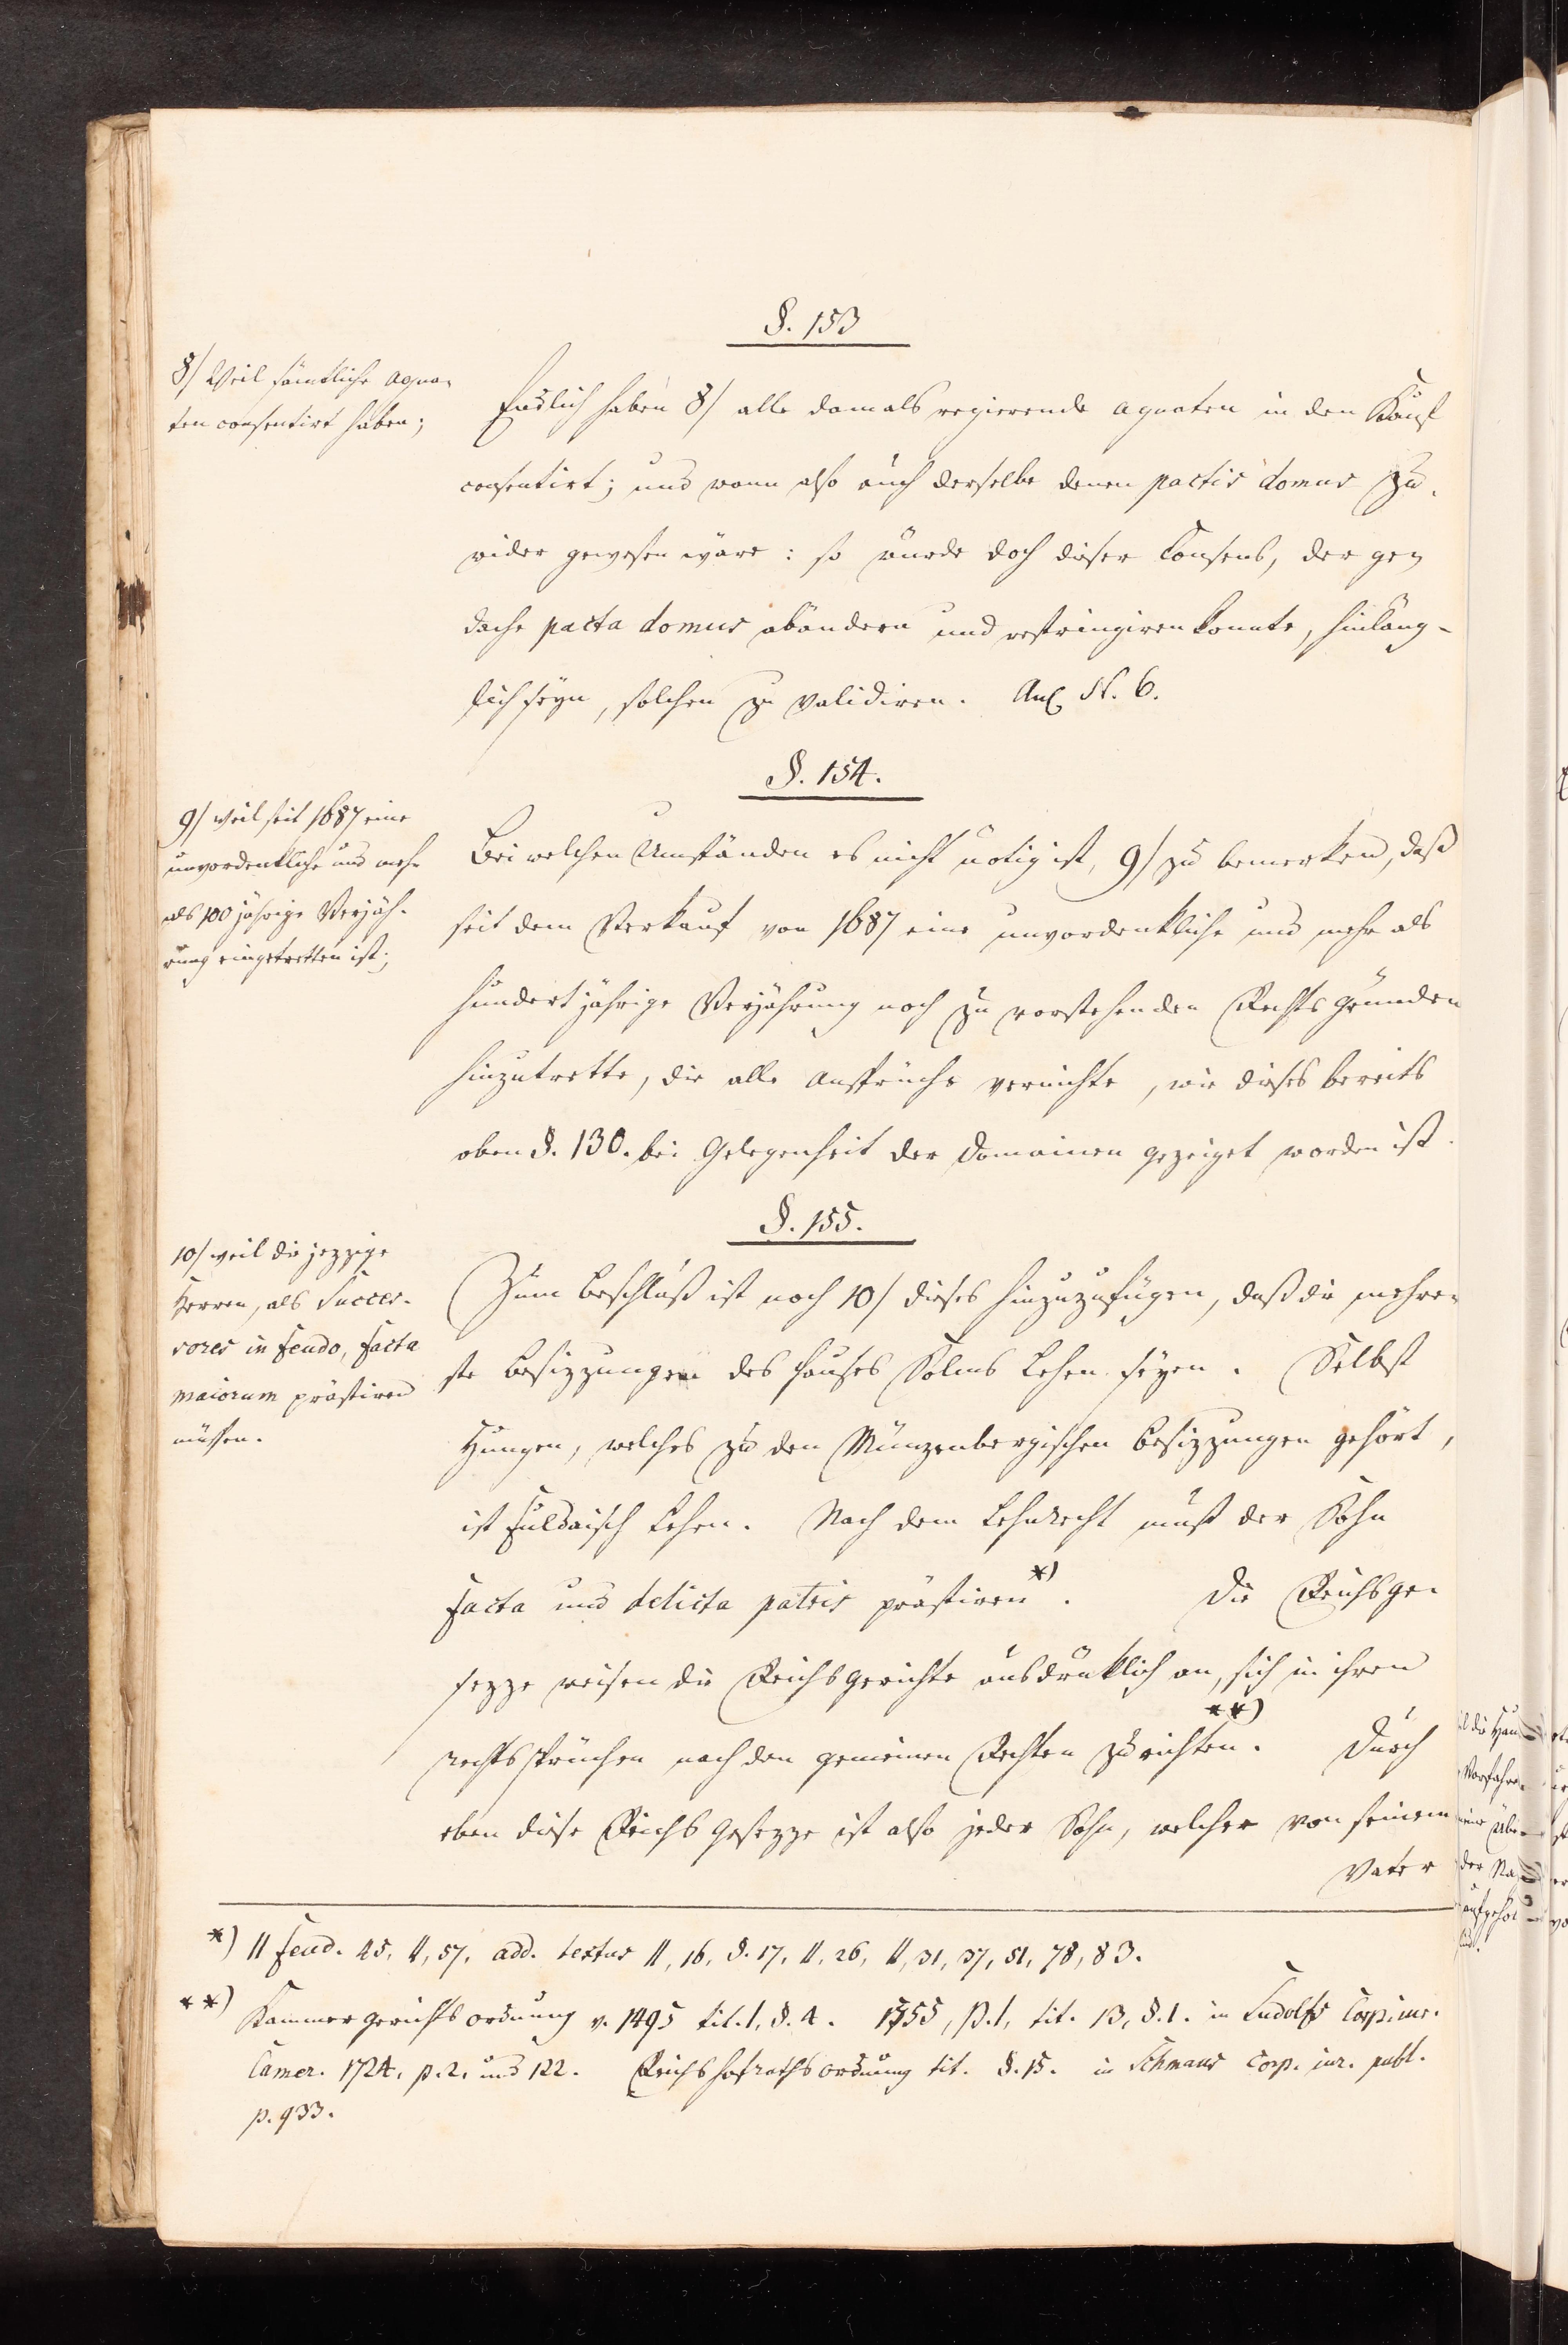 §. 153
8) Weil sämtliche Agna-
ten consentirt haben;
Endlich haben 8) alle damals regierende Agnaten in den Kauf
consentirt; und wann also auch derselbe denen pactis domus zu-
wider gewesen wäre: so würde doch dieser Consens, der ge-
dachte pacta domus abändern und restringiren konnte, hinläng-
lich seyn, solchen zu validiren. Anl. N. 6.
§. 154.
9) weil seit 1687 eine
unvordenkliche und mehr
als 100 jährige Verjäh-
rung eingetretten ist;
Bei welchen Umständen es nicht nötig ist, 9) zu bemerken, daß
seit dem Verkauf von 1687 eine unvordenkliche und mehr als
hundertjährige Verjährung noch zu vorstehenden Rechtsgründen
hinzutrette, die alle Ansprüche vernichte, wie dieses bereits
oben §. 130. bei Gelegenheit der Domainen gezeiget worden ist.
§. 155.
10) weil die jezzige
Herren, als Succes-
sores in feudo, facta
maiorum prästiren
müssen.
Zum Beschluß ist noch 10) dieses hinzuzufügen, daß die mehre-
ste Besizzungen des Hauses Solms Lehen seyen. Selbst
Hungen, welches zu den Münzenbergischen Besizzungen gehört,
ist Fuldaisch Lehen. Nach dem Lehnrecht muß der Sohn
facta und delicta patris prästiren *). Die Reichsge-
sezze weisen die Reichsgerichte ausdrüklich an, sich in ihren
Rechtssprüchen nach den gemeinen Rechten zu richten. **) Durch
eben diese Reichsgesezze ist also jeder Sohn, welcher von seinem
Vater
*) II feud. 45, II, 57, add. textus II, 16, §. 17, II, 26, II, 31, 37, 51, 78, 83.
**) Kammergerichtsordnung v. 1495 tit. 1, §. 4. 1555, P. 1, tit. 13, §. 1. in Ludolfs Corp. iur.
Camer. 1724, p. 2, und 122. Reichshofrathsordnung tit. §. 15. in Schmaus Corp. iur. publ.
p. 933.